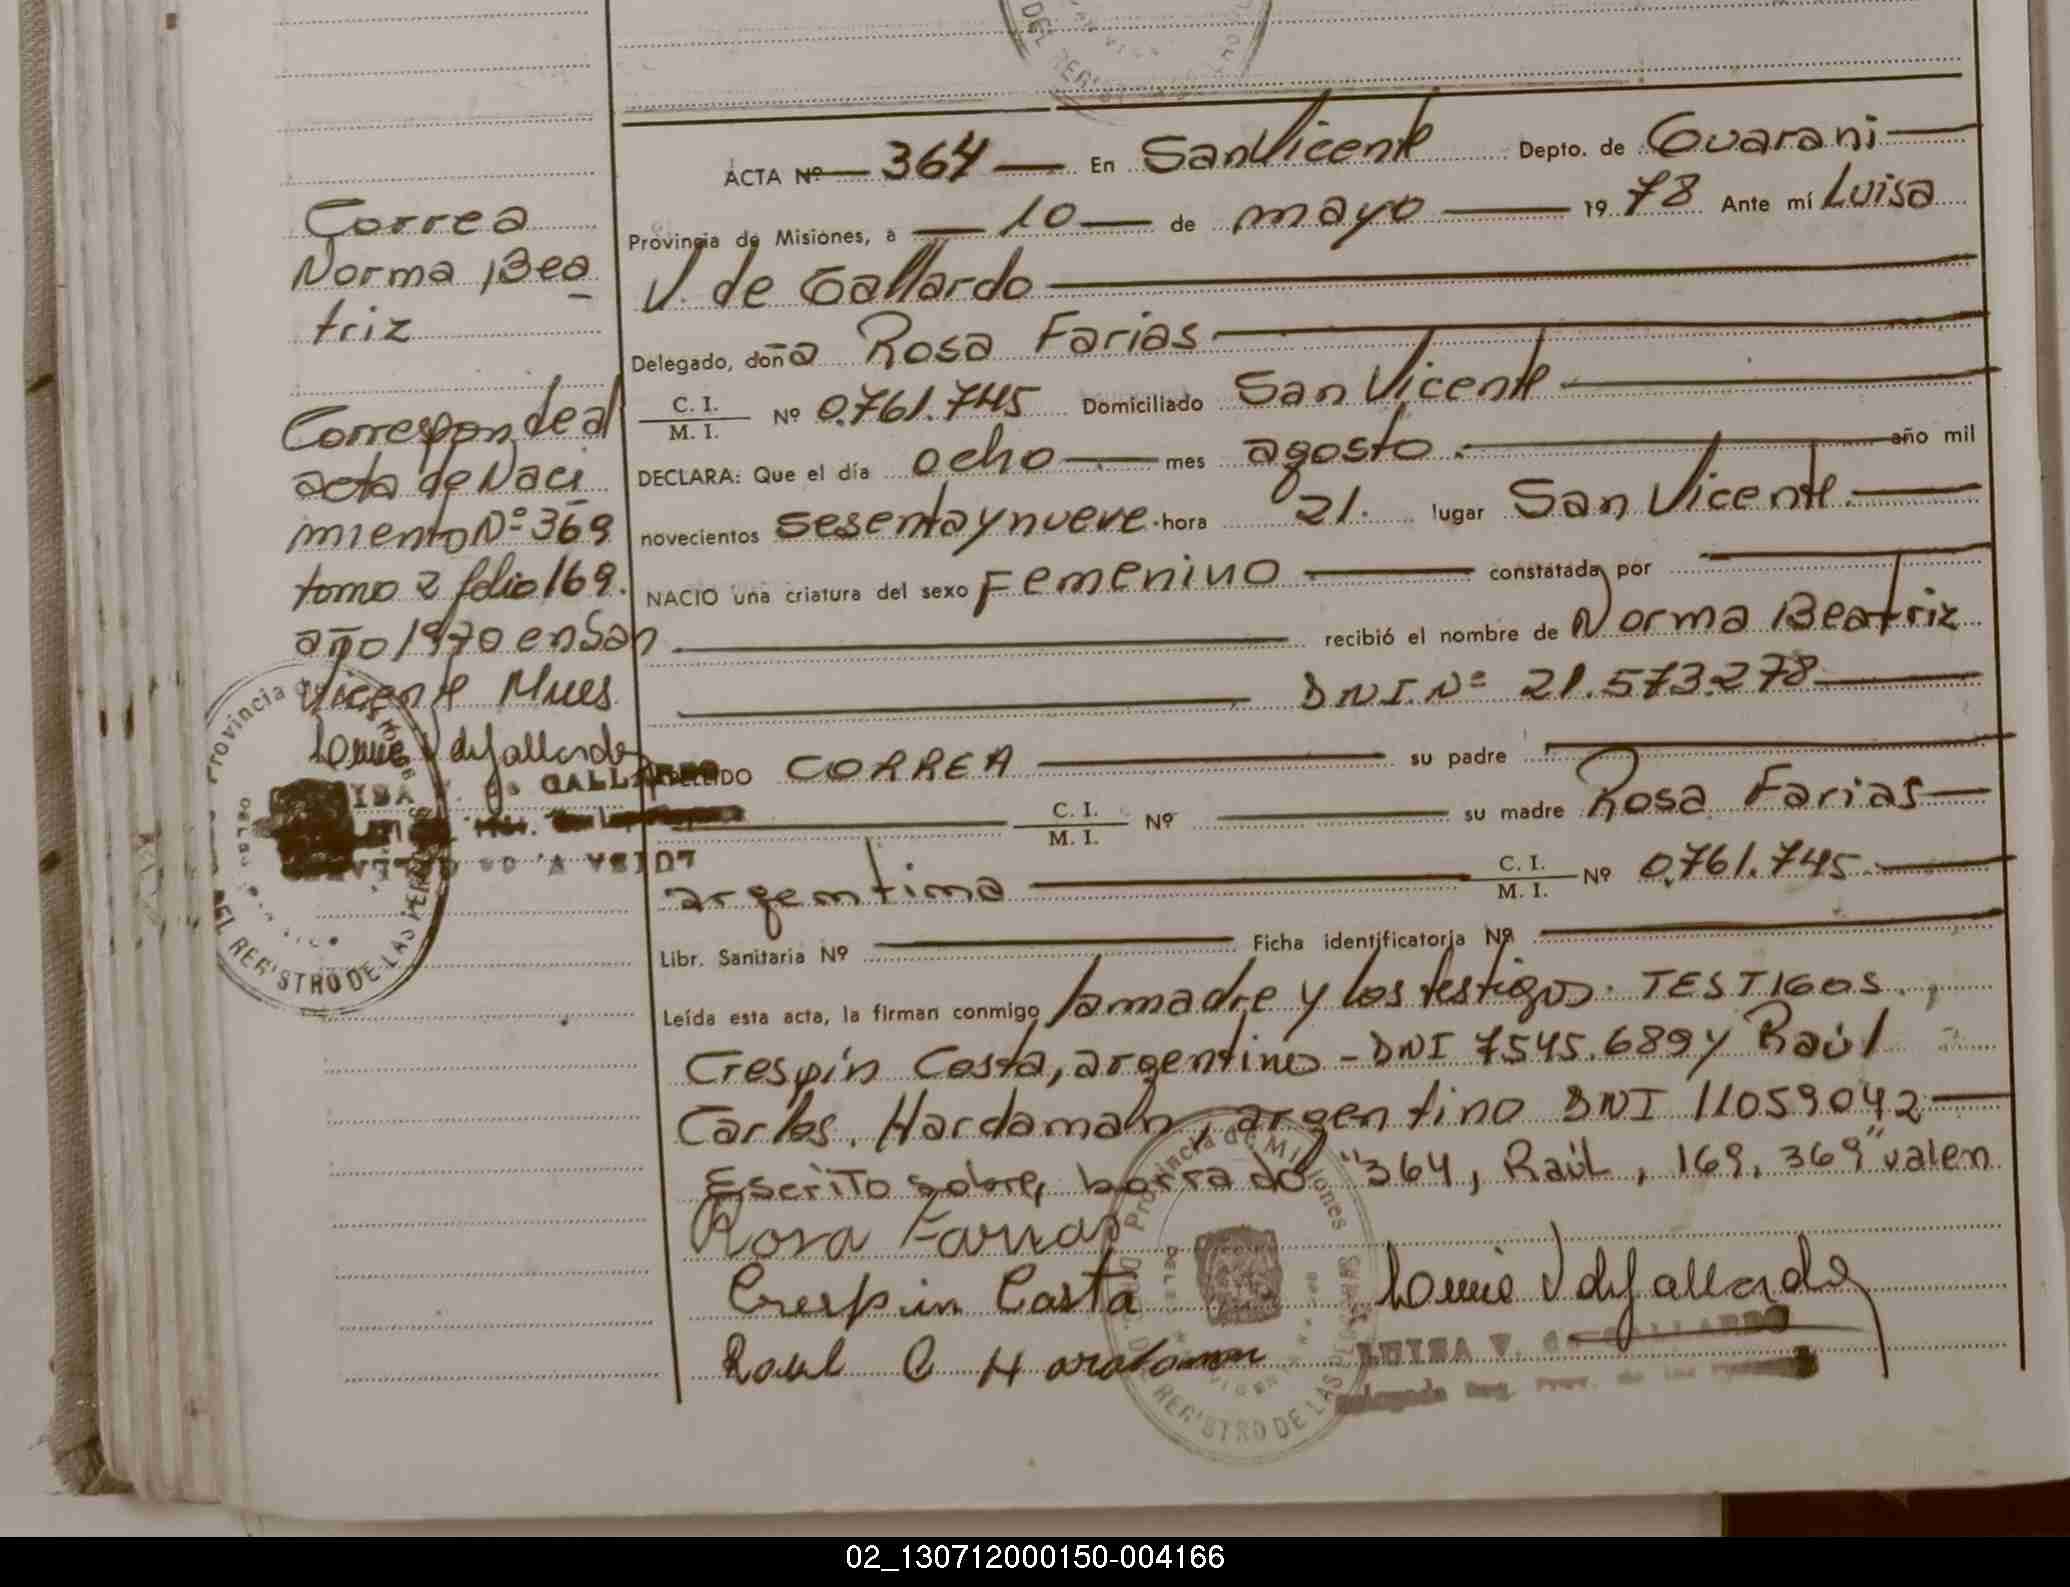 Correa
Norma Bea
triz
Corresponde al
acta de Naci
miento Nº 369
tomo 2 folio 169.
año 1970 en San
Vicente Mnes.
LUISA V. de GALLARDO
Provincia de
DEL REGISTRO DE LAS PERSONAS
ACTA Nº 364 En San Vicente Depto. de Guarani
Provincia de Misiones, a 10 de mayo 1978 Ante mí Luisa
V. de Gallardo
Delegado, doña Rosa Farias
C. I. / M. I. Nº 0.761.745 Domiciliado San Vicente
DECLARA: Que el día ocho mes agosto año mil
novecientos sesenta y nueve hora 21. lugar San Vicente
NACIO una criatura del sexo Femenino constatada por
recibió el nombre de Norma Beatriz
DNI. Nº 21.573.278
APELLIDO CORREA su padre
C. I. / M. I. Nº su madre Rosa Farias
argentina C. I. / M. I. Nº 0.761.745
Libr. Sanitaria Nº Ficha identificatoria Nº
Leída esta acta, la firman conmigo la madre y los testigos. TESTIGOS
Crespín Costa, argentino - DNI 7545.689 y Raúl
Carlos Hardaman, argentino DNI 11059042
Escrito sobre borrado "364, Raúl, 169, 369" valen
Rosa Farias
Crespin Costa
Raul C Hardaman
LUISA V. de GALLARDO
Provincia de Misiones
REGISTRO DE LAS
02_130712000150-004166